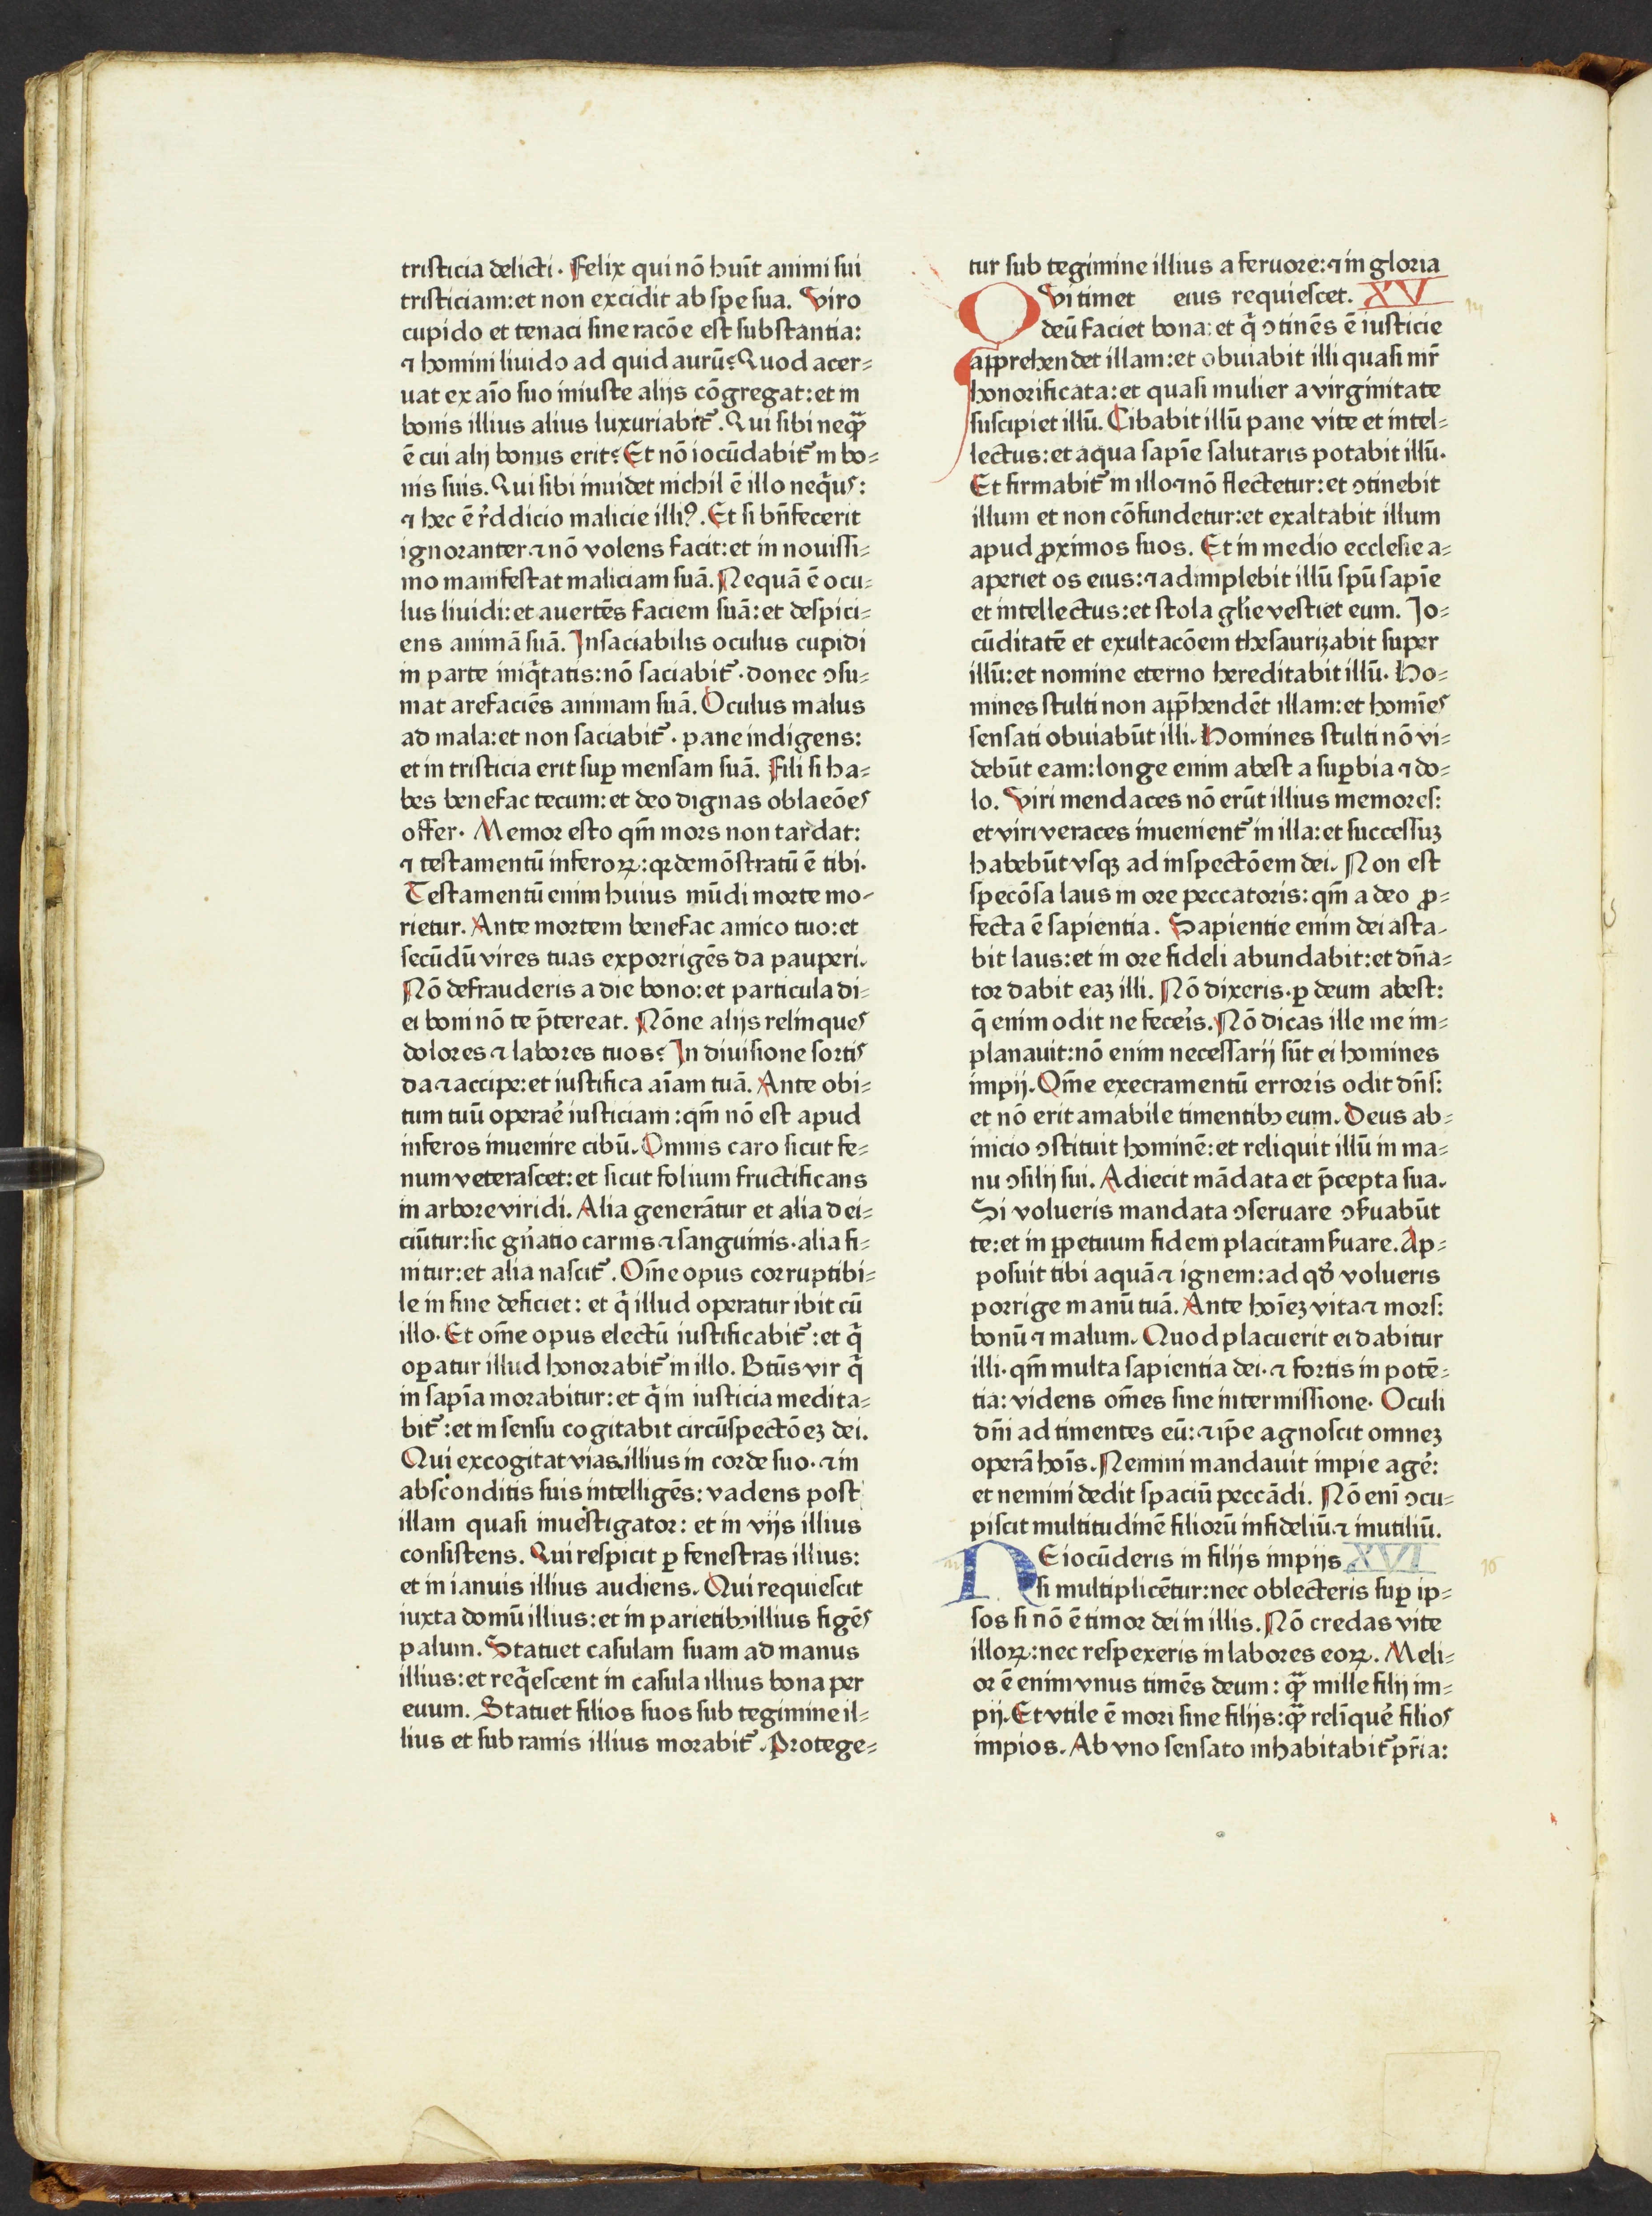 tristicia delicti. Felix qui nō huit̄ animi sui
tristiciam:et non excidit ab spe sua. Viro
cupido et tenaci sine racōe est substantia:
⁊ homini liuido ad quid aurū? Quod acer⸗
uat ex aīo suo iniuste alijs cōgregat:et in
bonis illius alius luxuriabit᷑. Qui sibi neqꝫ̄
ē cui alij bonus erit? Et nō iocūdabit᷑ in bo⸗
nis suis. Qui sibi inuidet nichil ē illo neq̄us:
⁊ hec ē r̓ddicio malicie illiꝰ. Et si bn̄fecerit
ignoranter ⁊ nō volens facit:et in nouissi⸗
mo manifestat maliciam suā. Nequā ē ocu⸗
lus liuidi:et auertēs faciem suā:et despici⸗
ens animā suā. Insaciabilis oculus cupidi
in parte iniq̄tatis:nō saciabit᷑. donec ↄsu⸗
mat arefaciēs animam suā. Oculus malus
ad mala:et non saciabit᷑. pane indigens:
et in tristicia erit suꝑ mensam suā. Fili si ha⸗
bes benefac tecum:et deo dignas oblacōes
offer. Memor esto qm̄ mors non tardat:
⁊ testamentū inferoꝝ:qꝛ demōstratū ē tibi.
Testamentū enim huius mūdi morte mo⸗
rietur. Ante mortem benefac amico tuo:et
secūdū vires tuas exporrigēs da pauperi.
Nō defrauderis a die bono:et particula di⸗
ei boni nō te p̄tereat. Nōne alijs relinques
dolores ⁊ labores tuos? In diuisione sortis
da ⁊ accipe:et iustifica aīam tuā. Ante obi⸗
tum tuū opera᷑e iusticiam:qm̄ nō est apud
inferos inuenire cibū. Omnis caro sicut fe⸗
num veterascet:et sicut folium fructificans
in arbore viridi. Alia generātur et alia dei⸗
ciūtur:sic gn̄atio carnis ⁊ sanguinis. alia fi⸗
nitur:et alia nascit᷑. Om̄e opus corruptibi⸗
le in fine deficiet: et q̄ illud operatur ibit cū
illo. Et om̄e opus electū iustificabit᷑:et q̄
oꝑatur illud honorabit᷑ in illo. Bt̄us vir q̄
in sapīa morabitur:et q̄ in iusticia medita⸗
bit᷑:et in sensu cogitabit circūspectōeꝫ dei.
Qui excogitat vias illius in corde suo. ⁊ in
absconditis suis intelligēs: vadens post
illam quasi inuestigator: et in vijs illius
consistens. Qui respicit ꝑ fenestras illius:
et in ianuis illius audiens. Qui requiescit
iuxta domū illius:et in parietibꝫ illius figēs
palum. Statuet casulam suam ad manus
illius:et req̄escent in casula illius bona per
euum. Statuet filios suos sub tegimine il⸗
lius et sub ramis illius morabit᷑. Protege⸗
tur sub tegimine illius a feruore:⁊ in gloria
eius requiescet. XV
QVi timet
deū faciet bona:et q̄ ↄtinēs ē iusticie
apprehendet illam:et obuiabit illi quasi mr̄
honorificata:et quasi mulier a virginitate
suscipiet illū. Cibabit illū pane vite et intel⸗
lectus:et aqua sapīe salutaris potabit illū.
Et firmabit᷑ in illo ⁊ nō flectetur:et ↄtinebit
illum et non cōfundetur:et exaltabit illum
apud ꝓximos suos. Et in medio ecclesie a⸗
aperiet os eius:⁊ adimplebit illū spū sapīe
et intellectus:et stola gl̄ie vestiet eum. Jo⸗
cūditatē et exultacōem thesaurizabit super
illū:et nomine eterno hereditabit illū. Ho⸗
mines stulti non app̄hendēt illam:et homīes
sensati obuiabūt illi. Homines stulti nō vi⸗
debūt eam:longe enim abest a suꝑbia ⁊ do⸗
lo. Viri mendaces nō erūt illius memores:
et viri veraces inuenient᷑ in illa:et successuꝫ
habebūt vsqꝫ ad inspectōem dei. Non est
specōsa laus in ore peccatoris: qm̄ a deo ꝓ⸗
fecta ē sapientia. Sapientie enim dei asta⸗
bit laus:et in ore fideli abundabit:et dn̄a⸗
tor dabit eaꝫ illi. Nō dixeris. ꝑ deum abest:
q̄ enim odit ne fece᷑is. Nō dicas ille me im⸗
planauit:nō enim necessarij sūt ei homines
impij. Om̄e execramentū erroris odit dn̄s:
et nō erit amabile timentibꝫ eum. Deus ab⸗
inicio ↄstituit hominē:et reliquit illū in ma⸗
nu ↄsilij sui. Adiecit mādata et p̄cepta sua.
Si volueris mandata ↄseruare ↄẜuabūt
te:et in ꝑpetuum fidem placitam ẜuare. Ap⸗
posuit tibi aquā ⁊ ignem:ad qđ volueris
porrige manū tuā. Ante hoīeꝫ vita ⁊ mors:
bonū ⁊ malum. Quod placuerit ei dabitur
illi. qm̄ multa sapientia dei. ⁊ fortis in potē⸗
tia: videns om̄es sine intermissione. Oculi
dn̄i ad timentes eū:⁊ ip̄e agnoscit omneꝫ
operā hoīs. Nemini mandauit impie age᷑:
et nemini dedit spaciū peccādi. Nō enī ↄcu⸗
piscit multitudinē filiorū infideliū ⁊ inutiliū.
NE iocūderis in filijs impijs XVI
si multiplicētur:nec oblecteris suꝑ ip⸗
sos si nō ē timor dei in illis. Nō credas vite
illoꝝ:nec respexeris in labores eoꝝ. Meli⸗
or ē enim vnus timēs deum: qꝫ̄ mille filij im⸗
pij. Et vtile ē mori sine filijs:qꝫ̄ relīque᷑ filios
impios. Ab vno sensato inhabitabit᷑ pr̄ia: